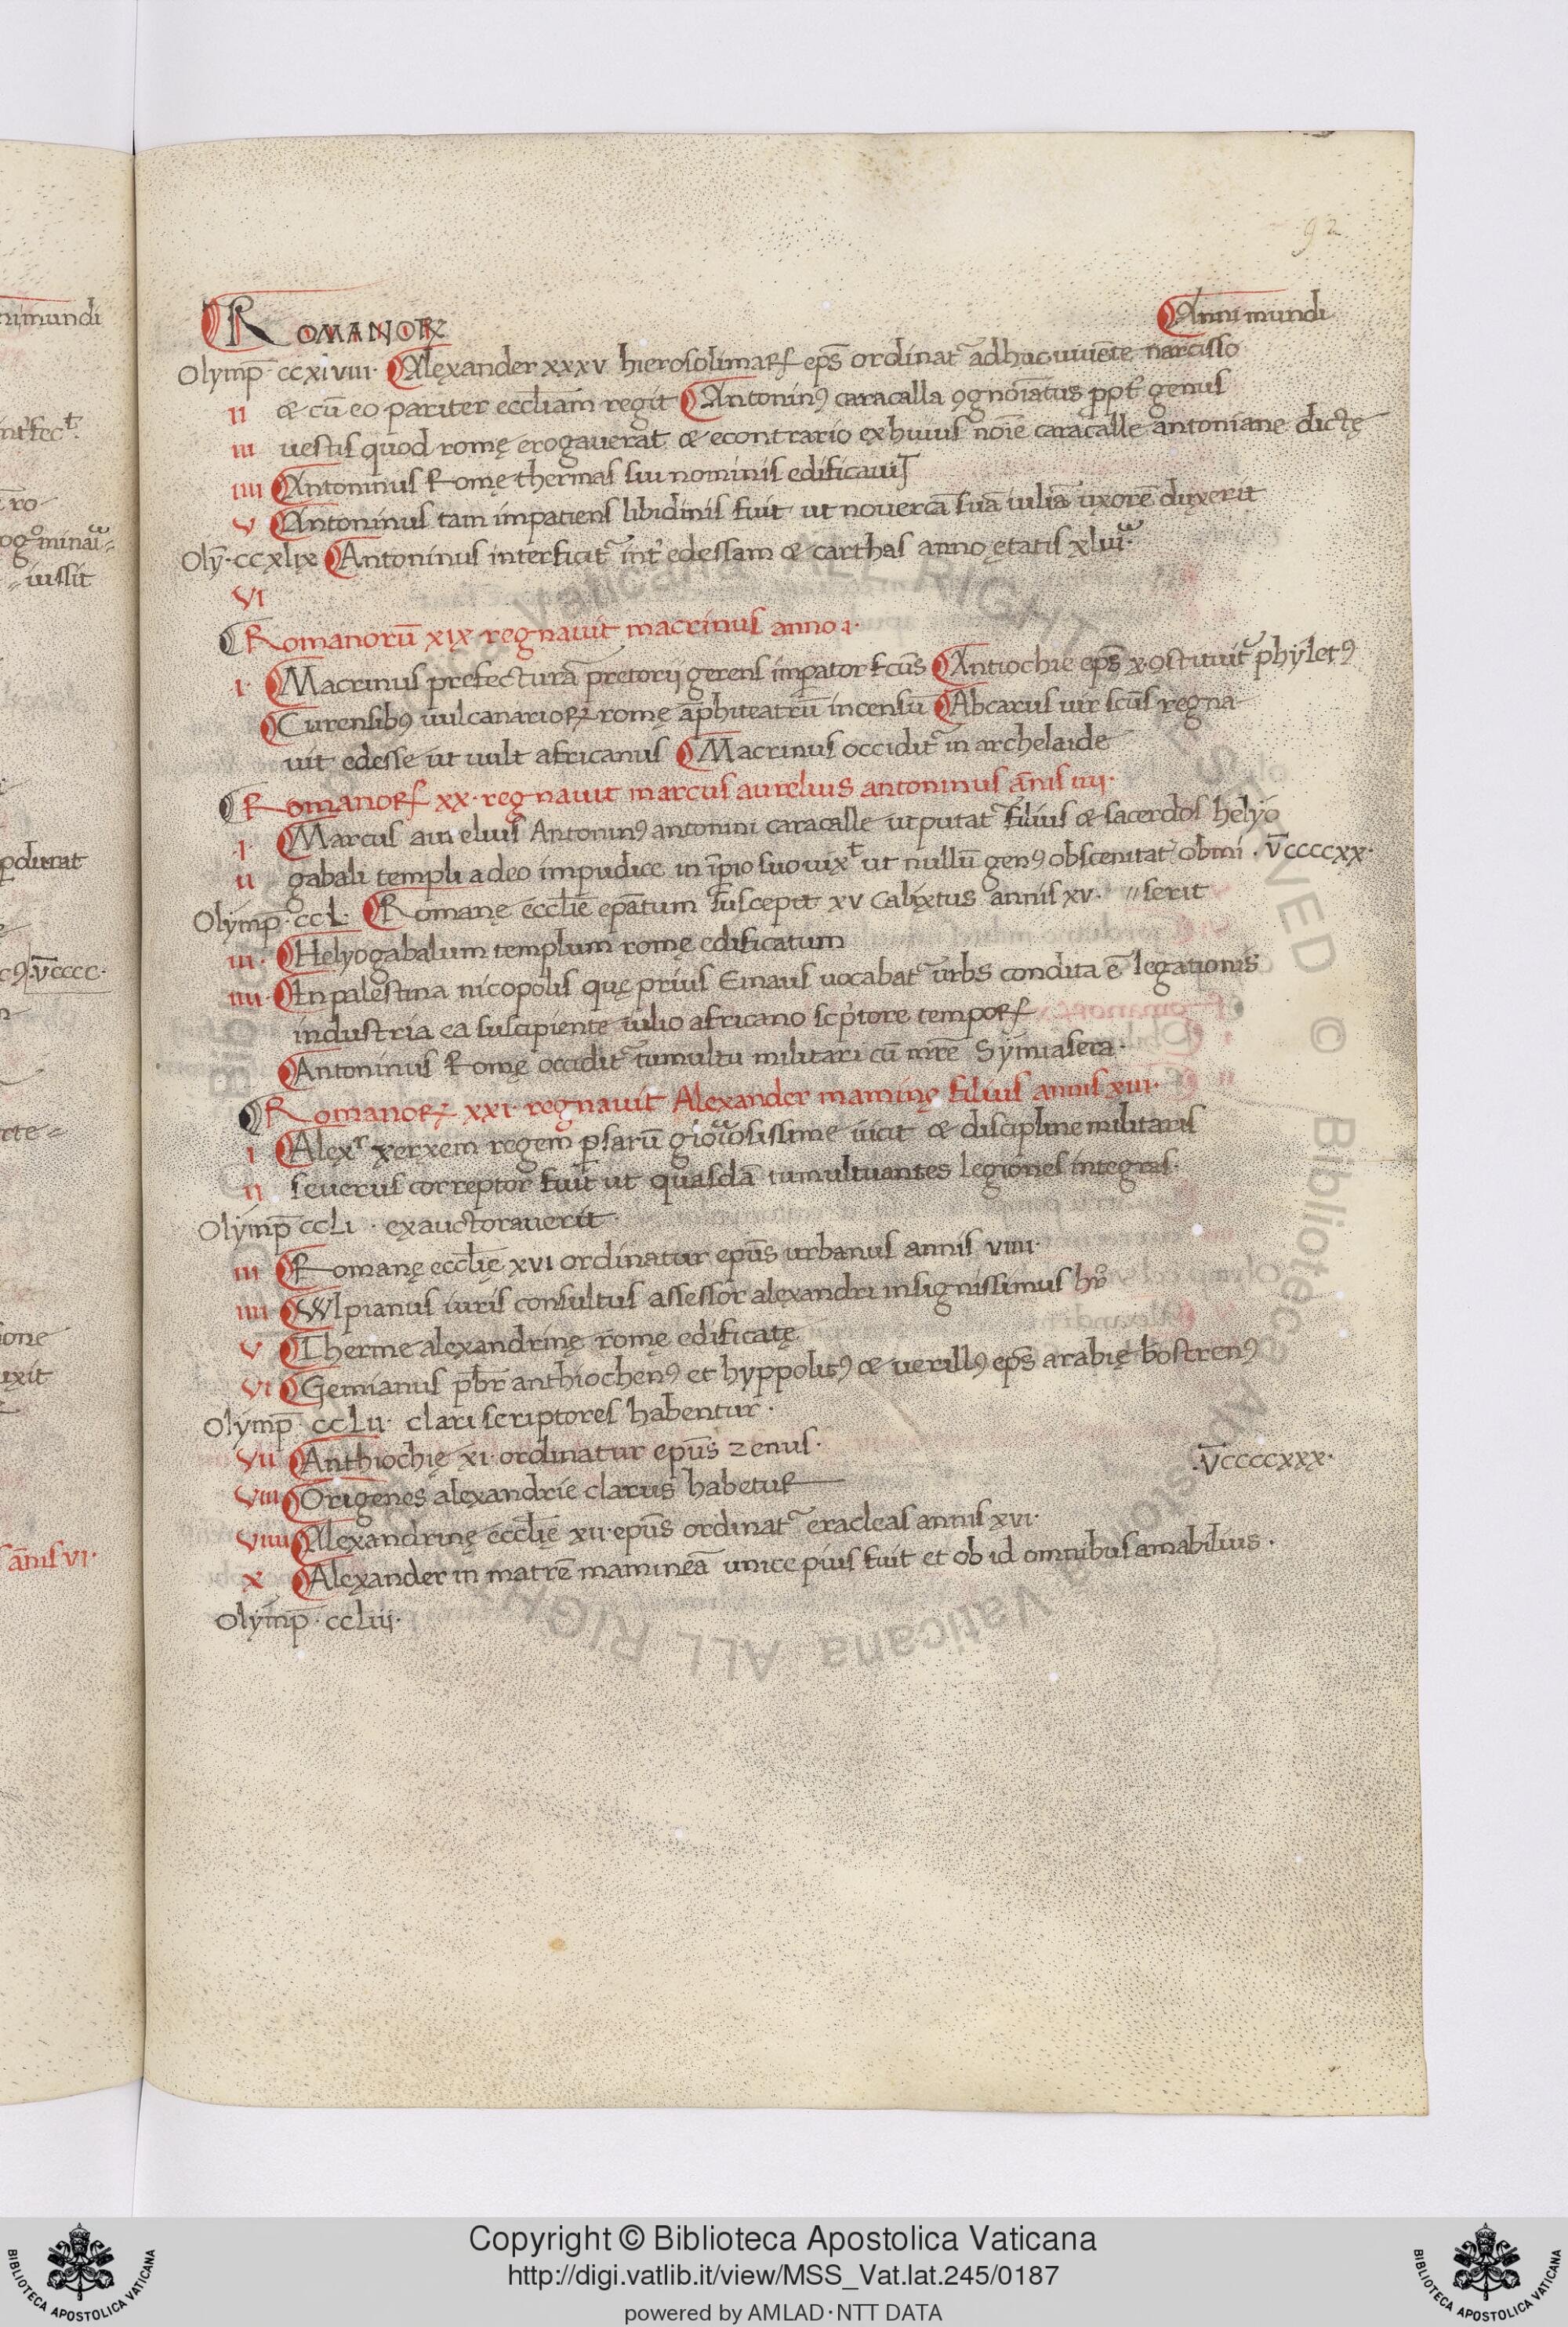 92
ROMANOꝜ
Anni mundi
Olymp̄ ccxlviii· Alexander xxxv hierosolimaꝝ ep̄s ordinat᷑ adhuc uiuēte narcisso
ii & cū eo pariter eccl̄iam regit Antoninꝰ caracalla ꝯgnoīatus ppt̄ genus
iii uestis quod romę erogauerat & econtrario ex huius noīe caracalle antoniane dictę
iiii Antoninus Romę thermas sui nominis edificauit
v Antoninus tam impatiens libidinis fuit ut nouercā suā iuliā uxorē duxerit
Olȳ·ccxlix Antoninus interficit᷑ int̄ edessam & carrhas anno etatis xlui
vi
Romanorū xix regnauit macrinus anno i·
i· Macrinus prefecturā pretorij gerens imp̄ator fcūs Antiochie ep̄s x·ꝯstituit᷑ phyletꝰ
Curensibꝰ uulcanarioꝝ romę āphiteatrū incensū Abcarus uir scūs regna
uit edesse ut uult africanus Macrinus occidit᷑ in archelaide
Romanoꝝ xx·regnauit marcus aurelius antoninus ānis iiii·
·i· Marcus aurelius Antoninꝰ antonini caracalle ut putat᷑ filius & sacerdos helyo
ii gabali templi adeo impudice in īpio suo uixᵗ ut nullū genꝰ obscenitat᷑ obmi· v̄ccccxx·
Olymp̄·ccl· Romanę eccl̄ie ep̄atum suscepit xv calixtus annis xv· "serit
iii· Helyogabalum templum romę edificatum
iiii· In palestina nicopolis quę prius Emaus uocabat᷑ urbs condita ē legationis
industria ea suscipiente iulio africano scp̄tore tempoꝝ
Antoninus Romę occidit᷑ tumultu militari cū mr̄e Symiasera·
Romanoꝝ xxi·regnauit Alexander maminę filius annis xiii·
i Alexʳ xerxem regem psarū gloiosissime uicit & discipline militaris
ii seuerus correptor fuit ut quasdā tumultuantes legiones integras·
Olymp̄ ccli · exauctorauerit·
iii Romanę eccl̄ię xvi ordinatur ep̄us urbanus annis viiii·
iiii Wlpianus iuris consultus assessor alexandri insignissimus hr̄
v Therme alexandrinę romę edificatę
vi Gemianus pb̄r anthiochenꝰ et hyppolitꝰ & uerillꝰ ep̄s arabię bostrenꝰ
Olymp̄· cclii· clari scriptores habentur·
vii Anthiochię xi·ordinatur ep̄us zenus·
·v̄ccccxxx·
viii Origenes alexandrie clarus habetur
viiii Alexandrinę eccl̄ię xii·ep̄us ordinat᷑ eracleas annis xvi·
x Alexander in matrē mamineā unice pius fuit et ob id omnibus amabilius·
Olymp̄·ccliii·
nimundi
ꝓdurat
·v̄cccc·
iussit
ione
uxit
s ānis vi·
Copyright © Biblioteca Apostolica Vaticana
http://digi.vatlib.it/view/MSS_Vat.lat.245/0187
powered by AMLAD·NTT DATA
BIBLIOTECA APOSTOLICA VATICANA
BIBLIOTECA APOSTOLICA VATICANA